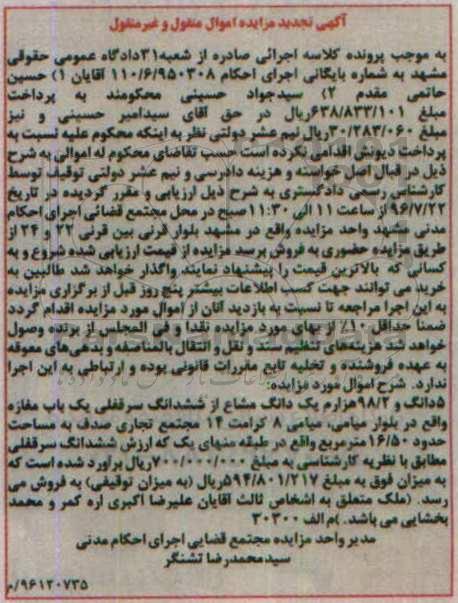 آگهی تجدید مزایده اموال منقول و غیرمنقول
به موجب پرونده کلاسه اجرائی صادره از شعبه۳۱دادگاه عمومی حقوقی
مشهد به شماره بایگانی اجرای احکام ۱۱۰/۶/۹۵۰۳۰۸ آقایان ۱) حسین
حاتمی مقدم ۲) سیدجواد حسینی محکومند به پرداخت
مبلغ ۶۳۸/۸۳۳/۱۰۱ریال در حق آقای سیدامیر حسینی و نیز
مبلغ ۳۰/۲۸۳/۰۶۰ریال نیم عشر دولتی نظر به اینکه محکوم علیه نسبت به
پرداخت دیونش اقدامی نکرده است حسب تقاضای محکوم له اموالی به شرح
ذیل در قبال اصل خواسته و هزینه دادرسی و نیم عشر دولتی توقیف توسط
کارشناس رسمی دادگستری به شرح ذیل ارزیابی و مقرر گردیده در تاریخ
۹۶/۷/۲۲ از ساعت ۱۱ الی ۱۱:۳۰صبح در محل مجتمع قضائی اجرای احکام
مدنی مشهد واحد مزایده واقع در مشهد بلوار قرنی بین قرنی ۲۲ و ۲۴ از
طریق مزایده حضوری به فروش برسد مزایده از قیمت ارزیابی شده شروع و به
کسانی که بالاترین قیمت را پیشنهاد نمایند واگذار خواهد شد طالبین به
خرید می توانند جهت کسب اطلاعات بیشتر پنج روز قبل از برگزاری مزایده
به این اجرا مراجعه تا نسبت به بازدید آنان از اموال مورد مزایده اقدام گردد
ضمنا حداقل ۱۰٪ از بهای مورد مزایده نقدا و فی المجلس از برنده وصول
خواهد شد هزینه‌های تنظیم سند و نقل و انتقال بالمناصفه و بدهی‌های معوقه
به عهده فروشنده و تخلیه تابع مقررات قانونی بوده و ارتباطی به این اجرا
ندارد. شرح اموال مورد مزایده:
۵دانگ و ۹۸/۲هزارم یک دانگ مشاع از ششدانگ سرقفلی یک باب مغازه
واقع در بلوار میامی، میامی ۸ کرامت ۱۴ مجتمع تجاری صدف به مساحت
حدود ۱۶/۵۰مترمربع واقع در طبقه منهای یک که ارزش ششدانگ سرقفلی
مطابق با نظریه کارشناسی به مبلغ ۷۰۰/۰۰۰/۰۰۰ریال براورد شده است که
به میزان فوق به مبلغ ۵۹۴/۸۰۱/۲۱۷ریال (به میزان توقیفی) به فروش می
رسد. (ملک متعلق به اشخاص ثالث آقایان علیرضا اکبری اره کمر و محمد
بخشایی می باشد. )م الف ۳۰۳۰۰
مدیر واحد مزایده مجتمع قضایی اجرای احکام مدنی
سیدمحمدرضا تشنگر
۹۶۱۲۰۷۳۵/م